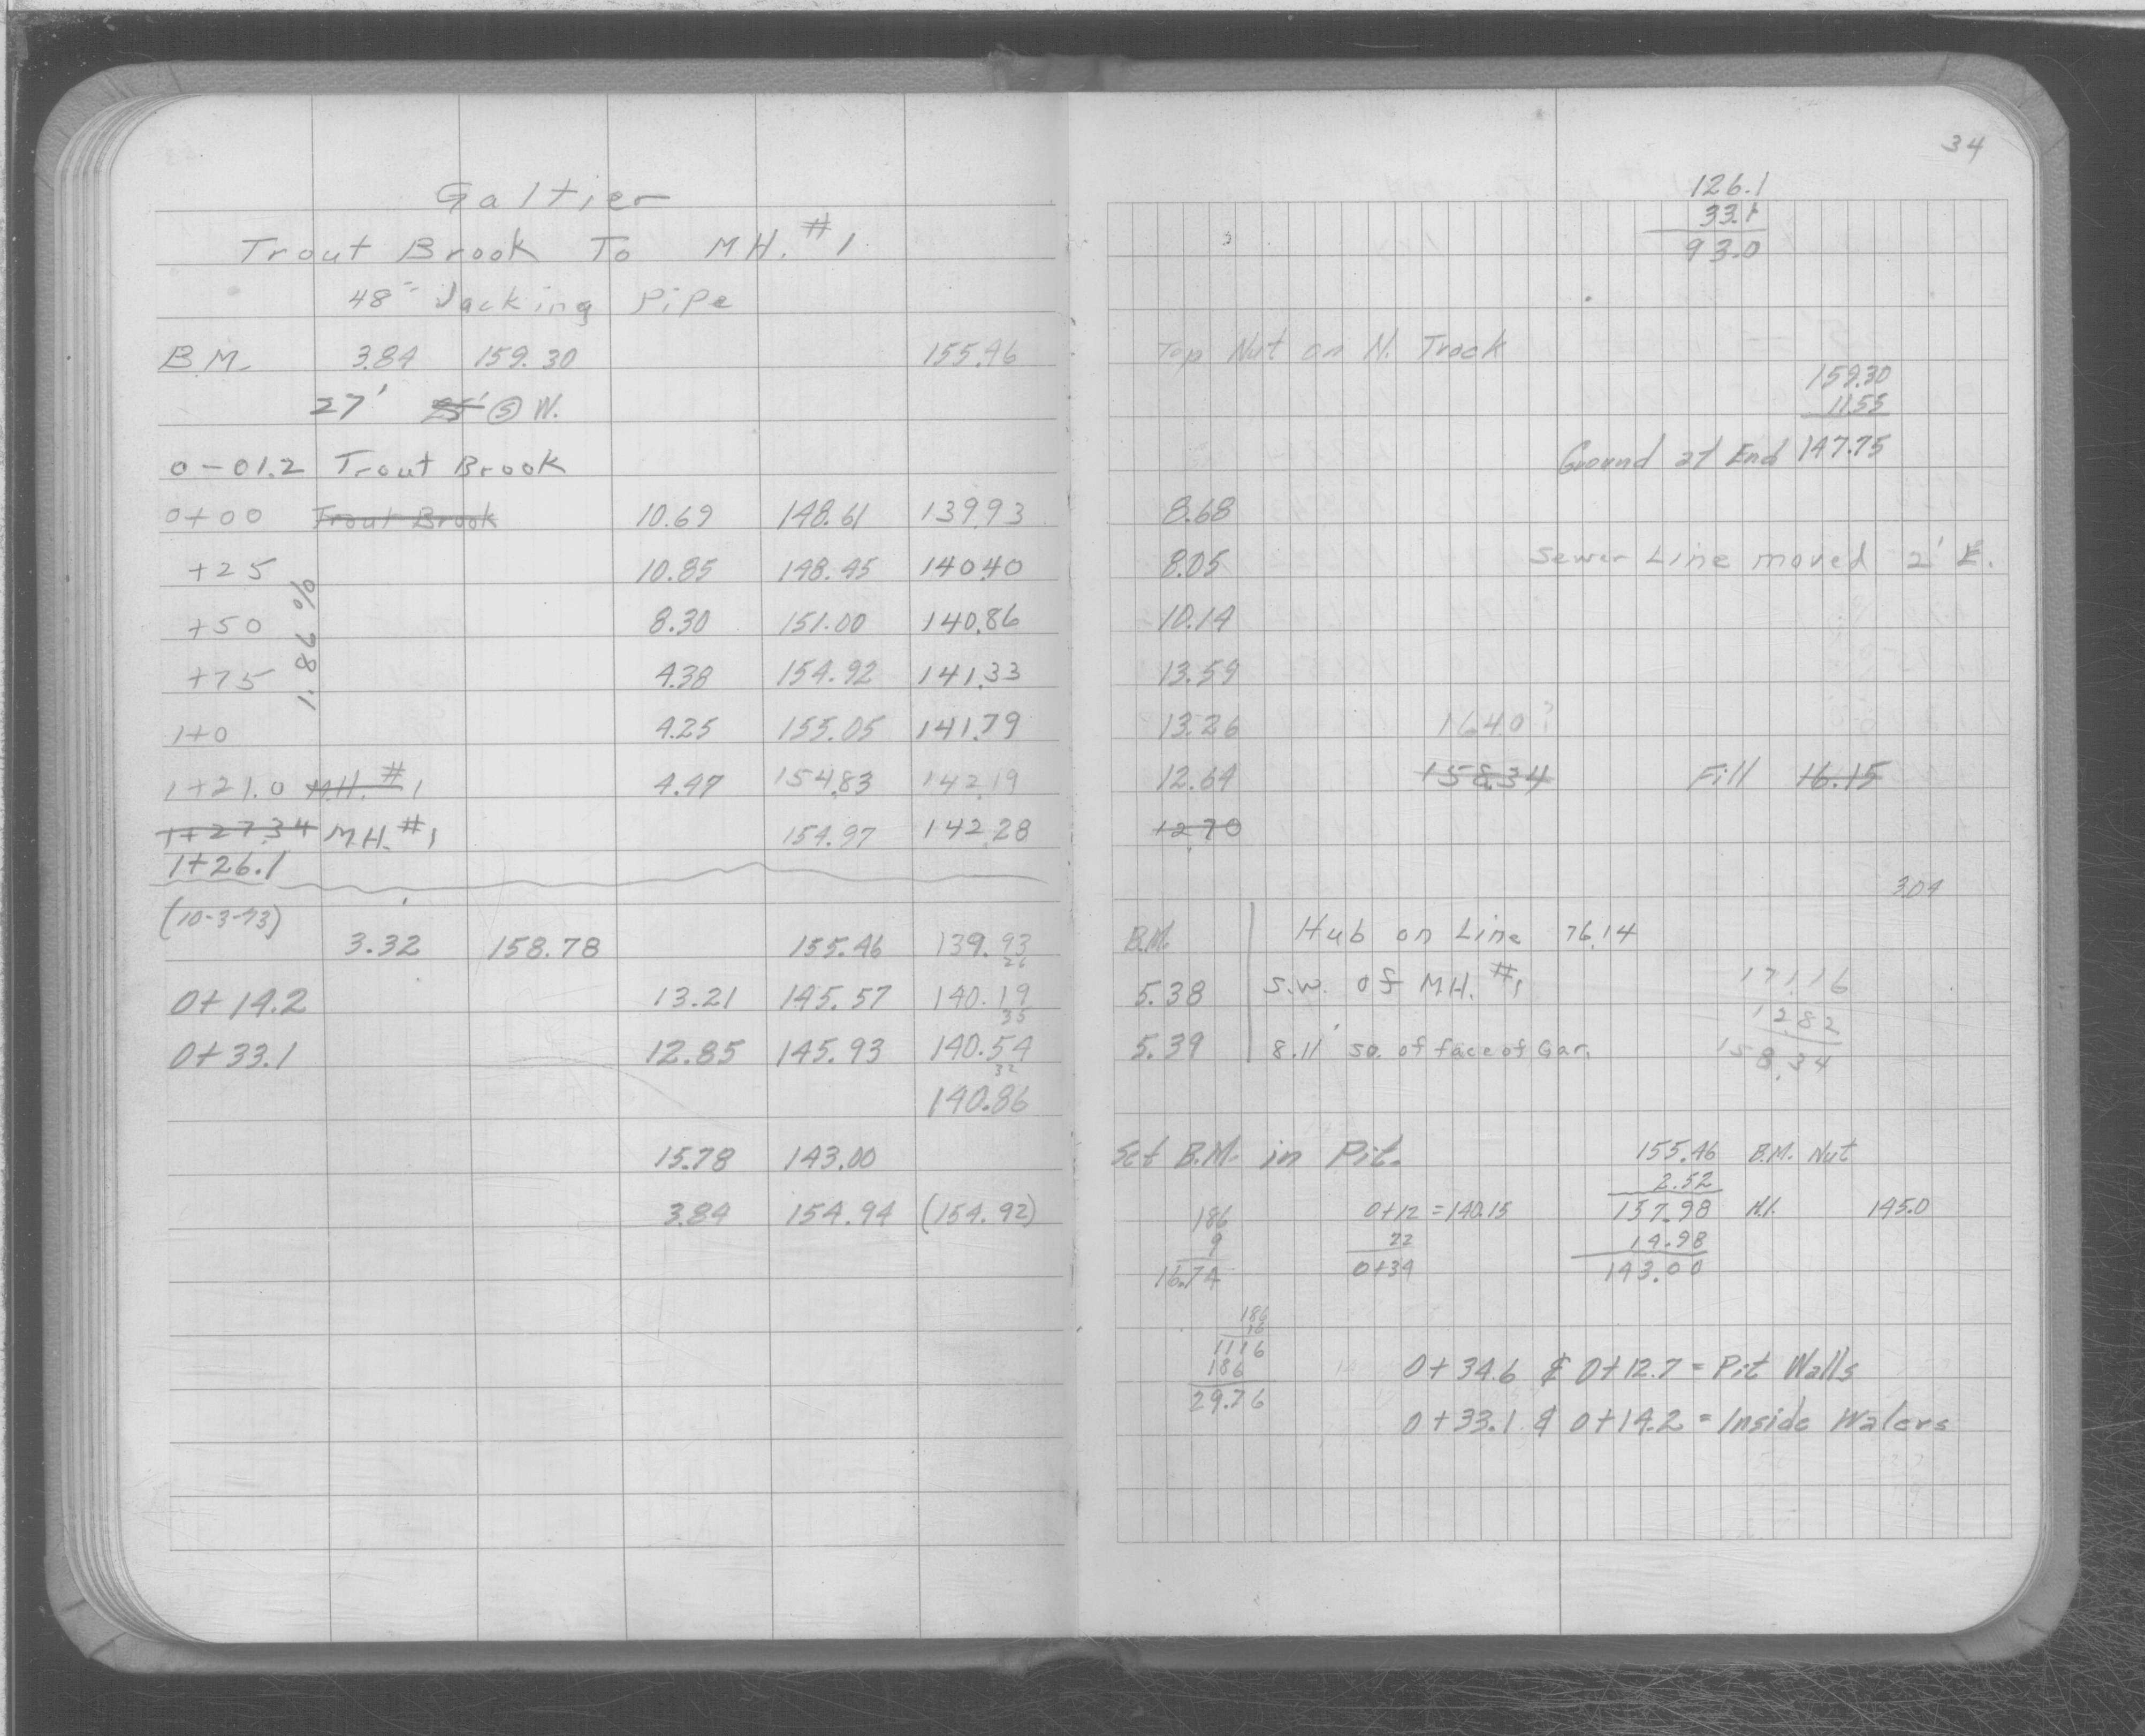 Galtier
Trout Brook To MH. #1
48" Jacking Pipe
B.M. 3.84 159.30 155.46
27' 25' @ W.
0-01.2 Trout Brook
0+00 Trout Brook 10.69 148.61 139.93
+25 10.85 148.45 140.40
+50 8.30 151.00 140.86
+75 4.38 154.92 141.33
1+0 4.25 155.05 141.79
1+21.0 MH. #1 4.47 154.83 142.19
1+27.34 MH. #1 154.97 142.28
1+26.1
1.86 %
(10-3-73)
3.32 158.78 155.46 139.93
26
0+14.2 13.21 145.57 140.19
35
0+33.1 12.85 145.93 140.54
32
140.86
15.78 143.00
3.84 154.94 (154.92)
34
126.1
33.1
93.0
Top Nut on N. Track
159.30
11.55
Ground at End 147.75
8.68
8.05 Sewer Line moved 2' E.
10.14
13.59
13.26 164.0?
12.64 158.34 Fill 16.15
12.70
304
B.M. Hub on Line 76.14
5.38 S.W. of MH. #1
5.39 8.11' so. of face of Gar.
171.16
12.82
158.34
Set B.M. in Pit.
155.46 B.M. Nut
2.52
157.98 H.I. 145.0
14.98
143.00
186
9
16.74
0+12 = 140.15
22
0+34
186
16
1116
186
29.76
0+34.6 & 0+12.7 = Pit Walls
0+33.1 & 0+14.2 = Inside Walers